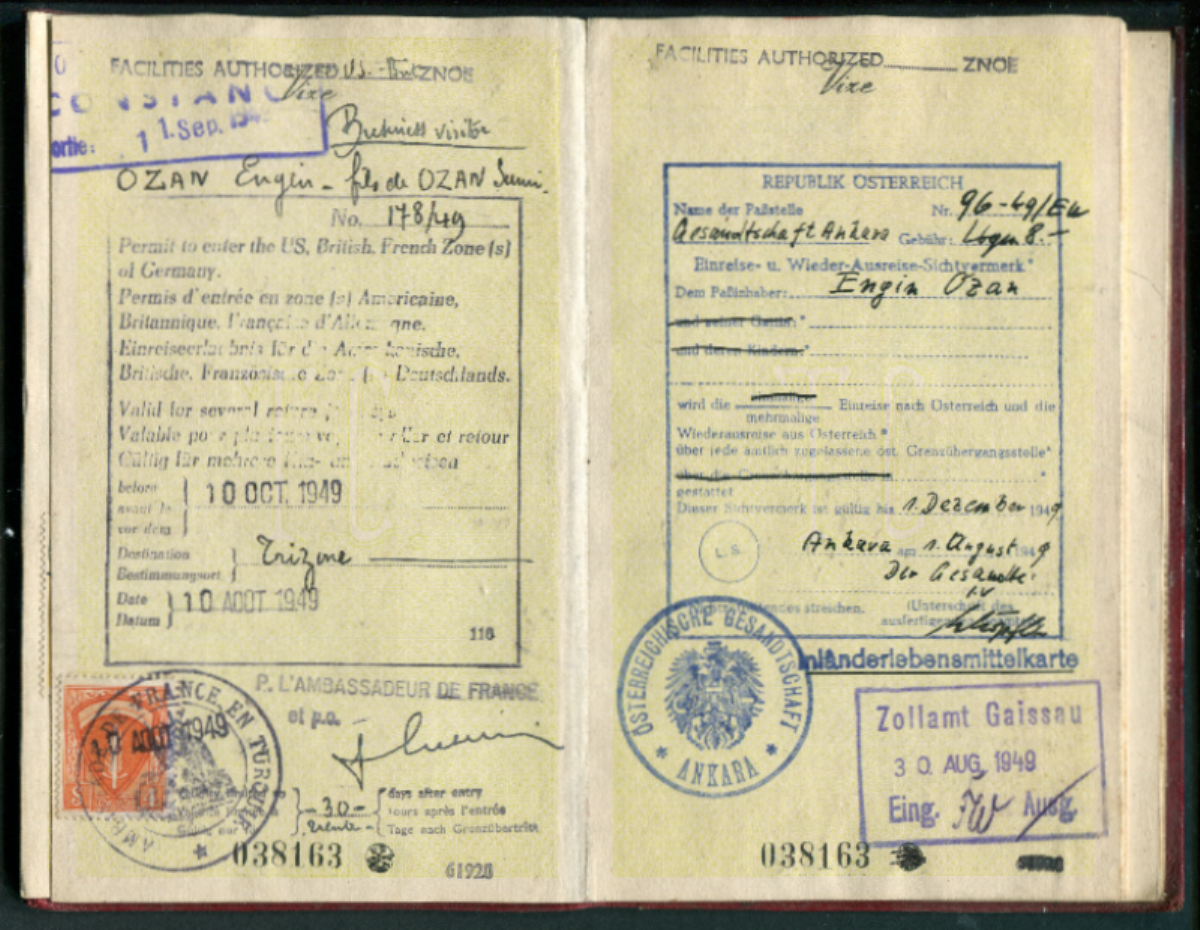 FACILITIES AUTHORIZED ZNOE
Vize
CONSTANC
ortie: 1 1. Sep. 194
Business visitor
OZAN Engin - fils de OZAN
No. 178/49
Permit to enter the US, British, French Zone (s)
of Germany.
Permis d'entrée en zone (s) Américaine,
Britannique, Française d'Allemagne.
Einreiseerlaubnis für die Amerikanische,
Britische, Französische Zone (n) Deutschlands.
Valid for several return
Valable pour plusieurs et retour
Gültig für mehrere
before
avant le
vor dem
10 OCT. 1949
Destination
Bestimmungsort
Trizone
Date
Datum
10 AOUT 1949
116
P. L'AMBASSADEUR DE FRANCE
et p.o.
AMBASSADE DE FRANCE EN TURQUIE
10 AOUT 1949
-30-
trente -
days after entry
jours après l'entrée
Tage nach Grenzübertritt
038163
61928
FACILITIES AUTHORIZED ZNOE
Vize
REPUBLIK ÖSTERREICH
Name der Paßstelle Nr. 96-49/
Gesandtschaft Ankara Gebühr: 8.-
Einreise- u. Wieder-Ausreise-Sichtvermerk*
Dem Paßinhaber: Engin Ozan
und seiner Gattin:*
und deren Kindern:*
einmalige
wird die Einreise nach Österreich und die
mehrmalige
Wiederausreise aus Österreich*
über jede amtlich zugelassene öst. Grenzübergangsstelle*
über die Grenzübergangsstelle in *
gestattet
Dieser Sichtvermerk ist gültig bis 1. Dezember 1949
L. S.
Ankara am 1. August 1949
Der Gesandte:
i.V
streichen. (Unterschrift des
ÖSTERREICHISCHE GESANDTSCHAFT
* ANKARA *
Inländerlebensmittelkarte
Zollamt Gaissau
30. AUG. 1949
Eing. Ausg.
038163